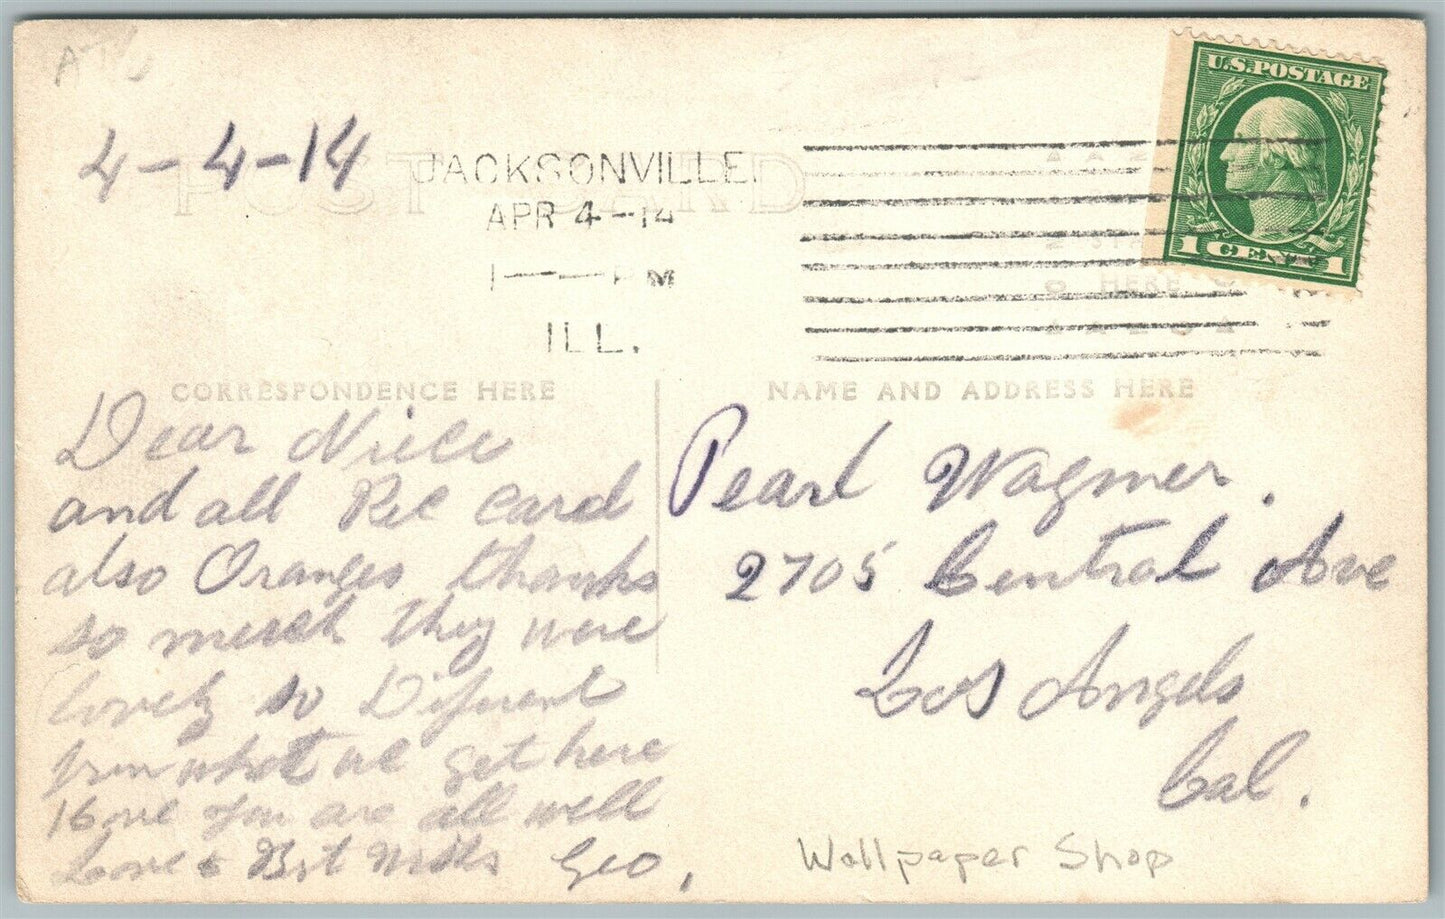 4-4-14
POST CARD
JACKSONVILLE
APR 4-14
1 — PM
ILL.
U.S. POSTAGE
1 CENT 1
HERE
CORRESPONDENCE HERE
NAME AND ADDRESS HERE
Dear Niece
and all Rec card
also Oranges thanks
so much they were
lovely so Diferent
from what we get here
I hope you are all well
Love & Best Wishes Geo,
Pearl Wagner.
2705 Central Ave
Los Angels
Cal.
Wallpaper Shop